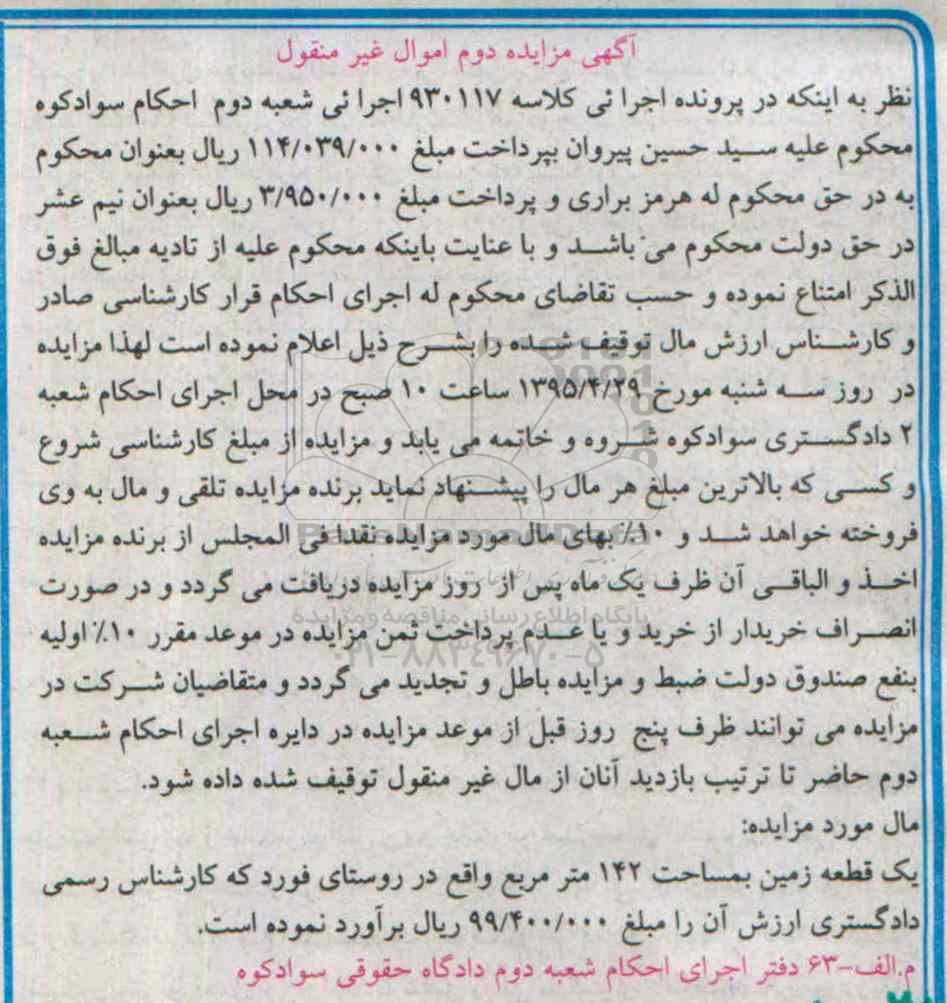 آگهی مزایده دوم اموال غیر منقول
نظر به اینکه در پرونده اجرا ئی کلاسه ۹۳۰۱۱۷ اجرا ئی شعبه دوم احکام سوادکوه
محکوم علیه سید حسین پیروان بپرداخت مبلغ ۱۱۴/۰۳۹/۰۰۰ ریال بعنوان محکوم
به در حق محکوم له هرمز براری و پرداخت مبلغ ۳/۹۵۰/۰۰۰ ریال بعنوان نیم عشر
در حق دولت محکوم می باشد و با عنایت باینکه محکوم علیه از تادیه مبالغ فوق
الذکر امتناع نموده و حسب تقاضای محکوم له اجرای احکام قرار کارشناسی صادر
و کارشناس ارزش مال توقیف شده را بشرح ذیل اعلام نموده است لهذا مزایده
در روز سه شنبه مورخ ۱۳۹۵/۴/۲۹ ساعت ۱۰ صبح در محل اجرای احکام شعبه
۲ دادگستری سوادکوه شروه و خاتمه می یابد و مزایده از مبلغ کارشناسی شروع
و کسی که بالاترین مبلغ هر مال را پیشنهاد نماید برنده مزایده تلقی و مال به وی
فروخته خواهد شد و ۱۰٪ بهای مال مورد مزایده نقدا فی المجلس از برنده مزایده
اخذ و الباقی آن ظرف یک ماه پس از روز مزایده دریافت می گردد و در صورت
پایگاه اطلاع رسانی مناقصه و مزایده
انصراف خریدار از خرید و یا عدم پرداخت ثمن مزایده در موعد مقرر ۱۰٪ اولیه
۰۲۱-۸۸۳۴۹۶۷۰-۵
بنفع صندوق دولت ضبط و مزایده باطل و تجدید می گردد و متقاضیان شرکت در
مزایده می توانند ظرف پنج روز قبل از موعد مزایده در دایره اجرای احکام شعبه
دوم حاضر تا ترتیب بازدید آنان از مال غیر منقول توقیف شده داده شود.
مال مورد مزایده:
یک قطعه زمین بمساحت ۱۴۲ متر مربع واقع در روستای فورد که کارشناس رسمی
دادگستری ارزش آن را مبلغ ۹۹/۴۰۰/۰۰۰ ریال برآورد نموده است.
م.الف-۶۳ دفتر اجرای احکام شعبه دوم دادگاه حقوقی سوادکوه